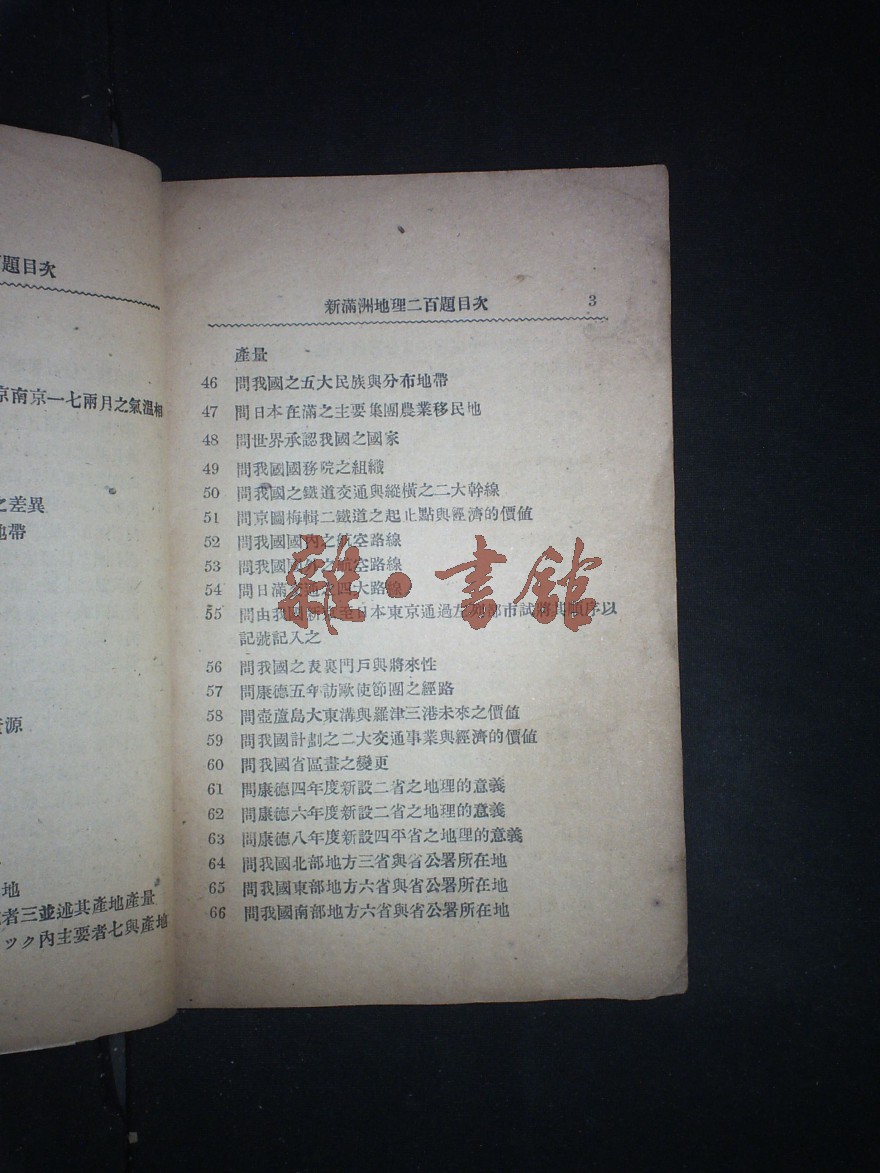 題目次
京南京一七兩月之氣溫相
之差異
地帶
資源
地
者三並述其產地產量
ック內主要者七與產地
新滿洲地理二百題目次 3
產量
46 問我國之五大民族與分布地帶
47 問日本在滿之主要集團農業移民地
48 問世界承認我國之國家
49 問我國國務院之組織
50 問我國之鐵道交通與縱橫之二大幹線
51 問京圖梅輯二鐵道之起止點與經濟的價值
52 問我國國內之航空路線
53 問我國國外之航空路線
54 問日滿交通之四大路線
55 問由我國新京至日本東京通過左列都市試將其順序以
記號記入之
56 問我國之表裏門戶與將來性
57 問康德五年訪歐使節團之經路
58 問壺蘆島大東溝與羅津三港未來之價值
59 問我國計劃之二大交通事業與經濟的價值
60 問我國省區畫之變更
61 問康德四年度新設二省之地理的意義
62 問康德六年度新設二省之地理的意義
63 問康德八年度新設四平省之地理的意義
64 問我國北部地方三省與省公署所在地
65 問我國東部地方六省與省公署所在地
66 問我國南部地方六省與省公署所在地
雜·書館